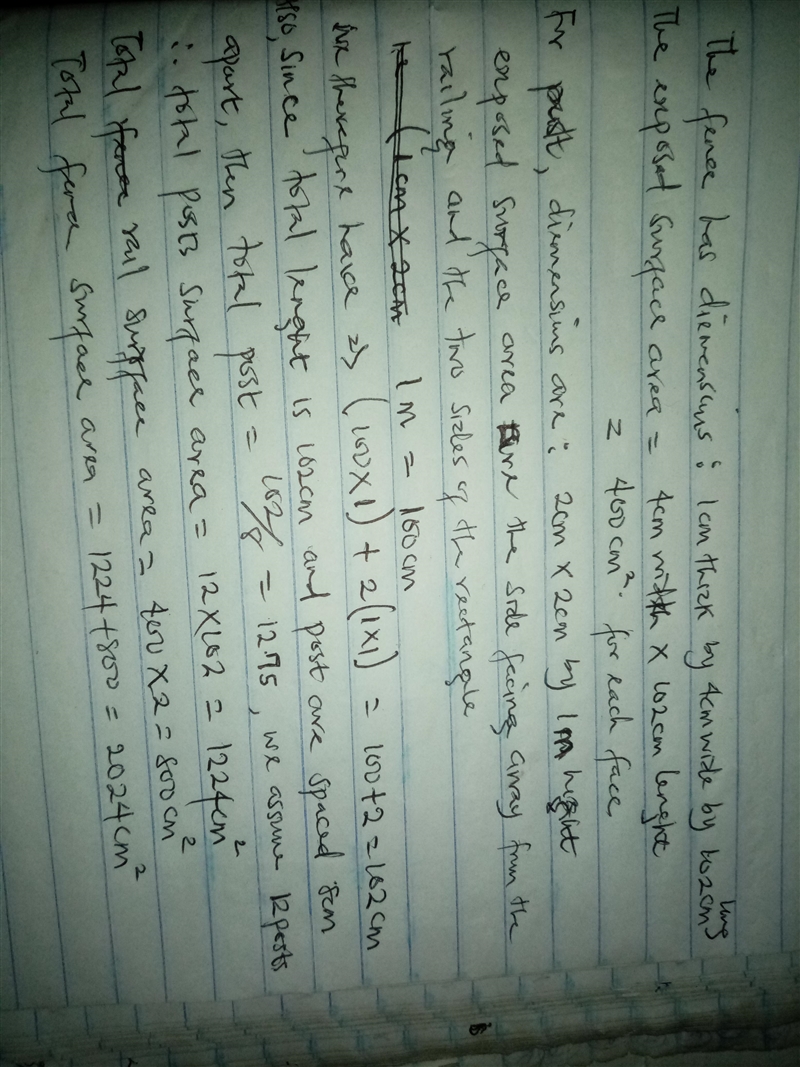 The fence has diemensions: 1cm thick by 4cm wide by 102cm long
The exposed surface area = 4cm width x 102cm lenght
= 400cm². for each face
For post, diemensions are: 2cm x 2cm by 1m hight
exposed surface area are the side facing away from the
railing and the two sides of the rectangle
(1cm x 2cm 1m = 100cm
We therefore have => (100x1) + 2(1x1) = 100+2=102cm
Also, since total lenght is 102cm and post are spaced 8cm
apart, then total post = 102/8 = 12.75, we assume 12posts
∴ total posts surface area = 12x102 = 1224cm²
Total fence rail surface area = 400x2 = 800cm²
Total fence surface area = 1224+800 = 2024cm²